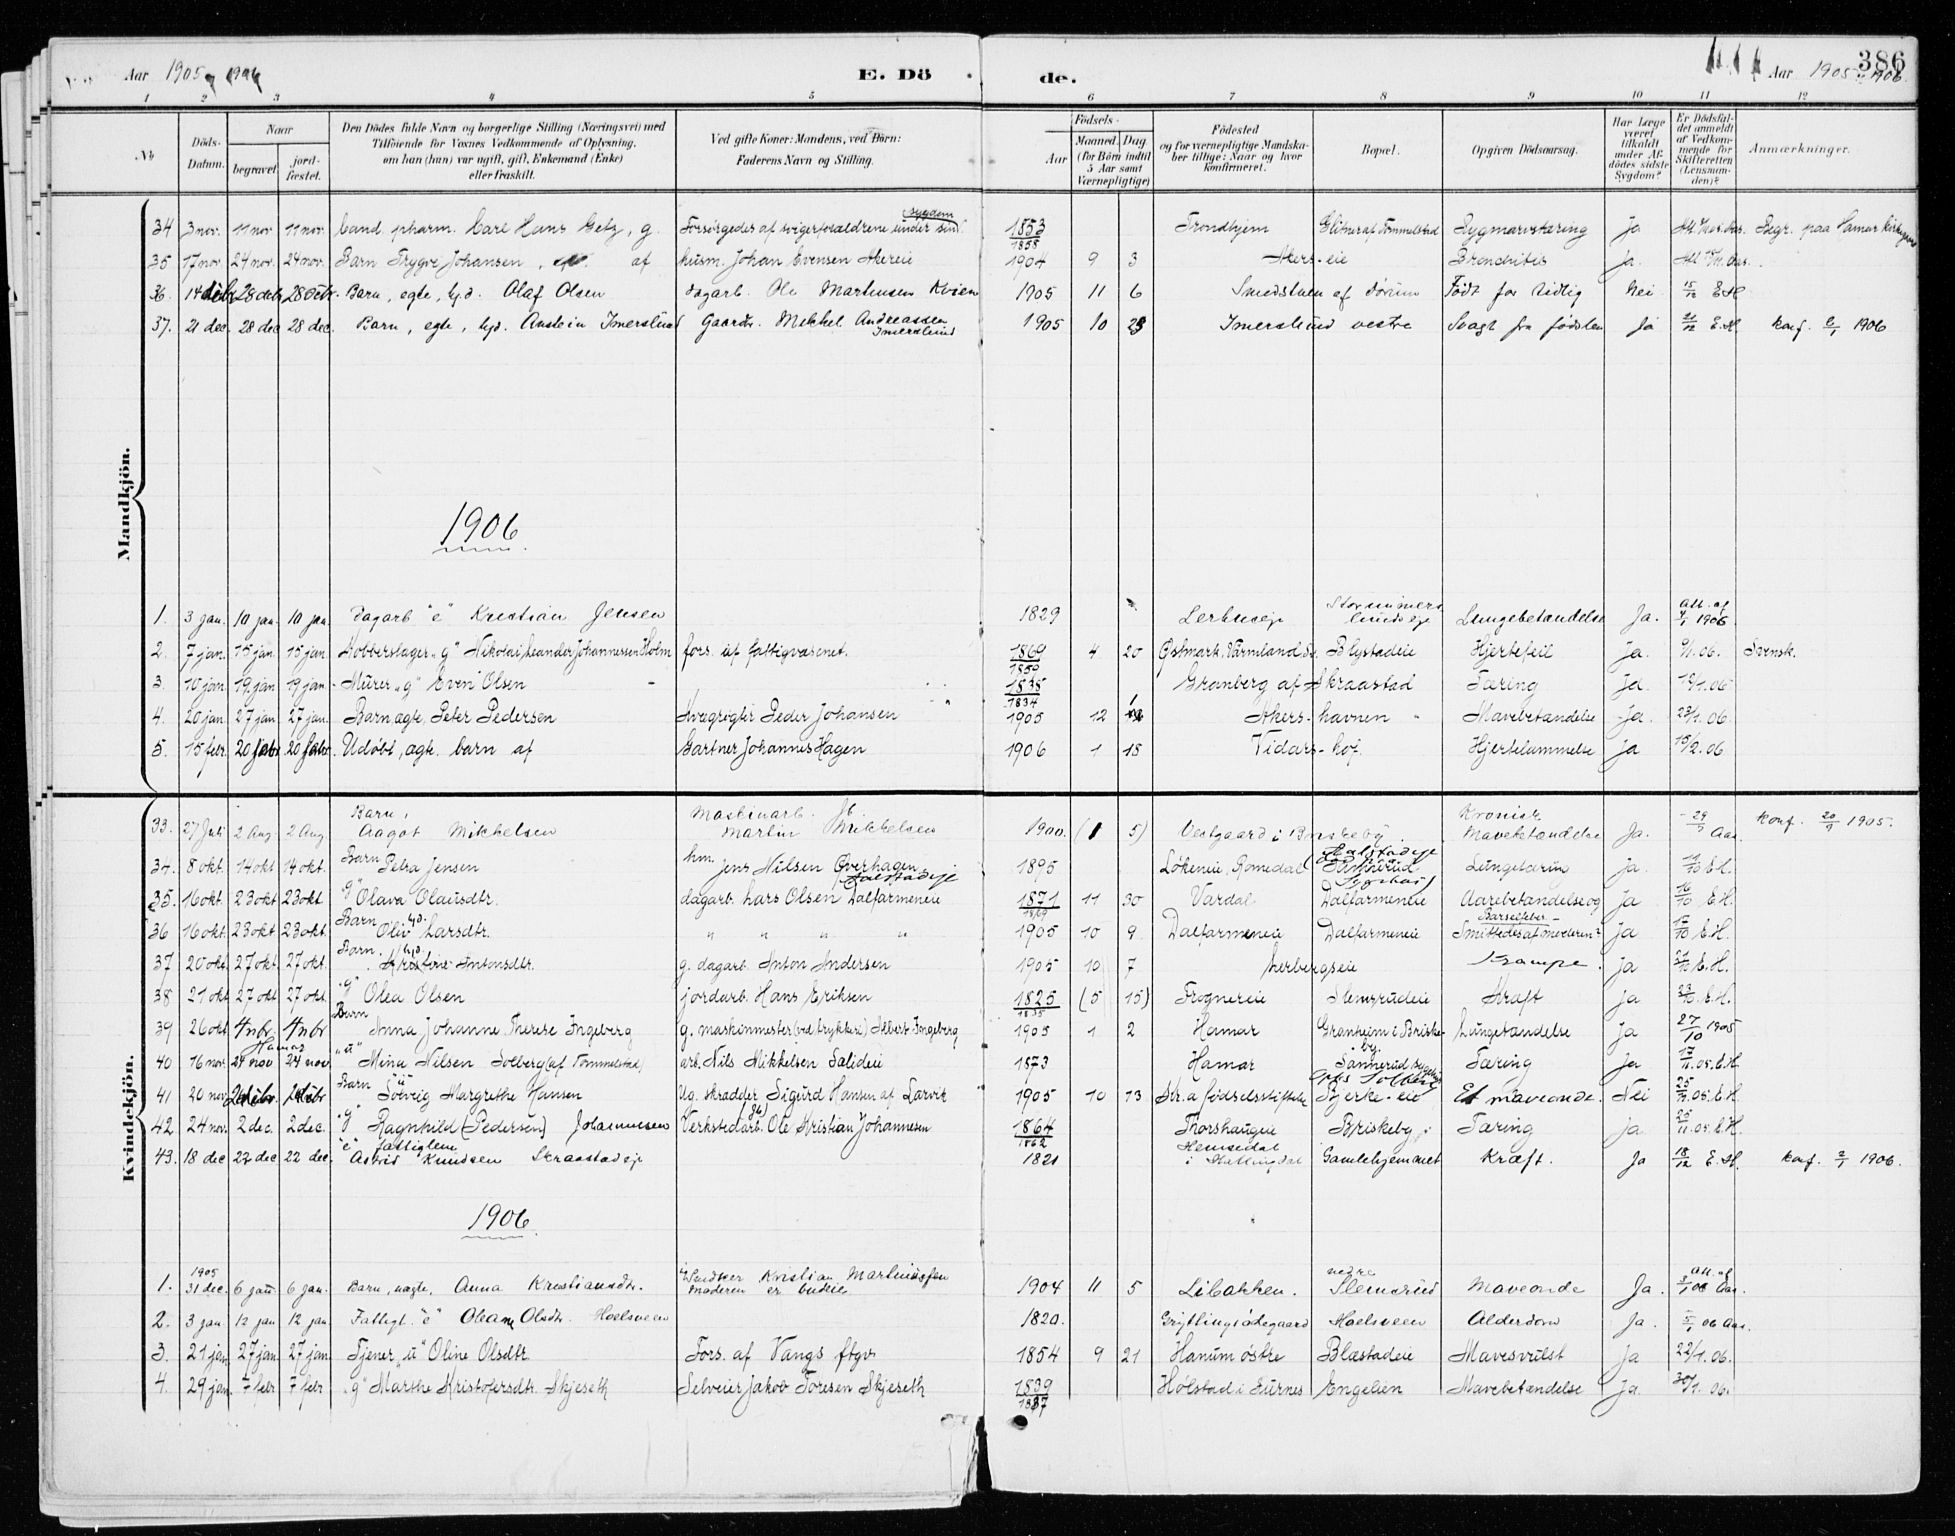 Aar 1905 og 1906
E. Dö de.
386
Aar 1905 og 1906
1 2 3 4 5 6 7 8 9 10 11 12
No
Döds-Datum.
Naar
begravet.
jordfæstet.
Den Dödes fulde Navn og borgerlige Stilling (Næringsvei) med
Tilföiende for Voxnes Vedkommende af Oplysning,
om han (hun) var ugift, gift, Enkemand (Enke)
eller fraskilt.
Ved gifte Koner: Mandens, ved Börn:
Faderens Navn og Stilling.
Födsels-
Aar
Maaned. Dag
(for Börn indtil
5 Aar samt
Værnepligtige)
Födested
og for værnepligtige Mandska-
ber tillige: Naar og hvor
konfirmeret.
Bopæl.
Opgiven Dödsaarsag.
Har Læge
været
tilkaldt
under Af-
dödes sidste
Sygdom?
Er Dödsfal-
det anmeldt
af Vedkom-
mende for
Skifteretten
(Lensman-
den)?
Anmærkninger.
Mandkjön.
34 3 nov. 11 nov 11 nov. Cand. pharm. Carl Hans Getz, g. Forsørgedes af svigerforældrene under sind. sygdom 1853 1855 Trondhjem Glitner af Tommelstad Rygmarvstæring Ja Begr. paa Hamar Kirkegaard
35 17 nov 24 nov. 24 nov. Barn Trygve Johansen, af husm. Johan Evensen Akereie 1904 9 3 Akers-eie Bronchites Ja.
36. 14 debr 28 debr 28 debr. Barn, egte, hjd. Olaf Olsen Dagarb. Ole Martinsen Kvien 1905 11 6 Smedstuen af Dørum Født for tidlig Nei 15/12 E.H
37. 21 dec. 28 dec 28 dec. Barn, egte, hjd. Anstein Imerslund Gaardr. Mikkel Andreassen Imerslund 1905 10 23 Imerslund vestre Svagt fra fødslen Ja 21/12 E.H. konf. 2/1 1906
1906
1. 3 jan. 10 jan. 10 jan. Dagarb "e" Kristian Jensen 1829 Lerhuseje Storimers lundeje Lungebetændelse Ja. Att. af 4/1 1906
2. 7 jan. 15 jan. 15 jan. Kobberslager "g" Nikolai Leander Johannessen Holm fors. af fattigvæsenet. 1869 1850 4 20 Østmark, Värmland Sv. Blystadeie Hjertefeil Ja. 9/1. 06. Svensk.
3. 10 jan. 19 jan 19 jan. Murer "g" Even Olsen 1835 1834 Granberg af Skraastad Tæring Ja. 12/1. 06
4. 20 jan. 27 jan. 27 jan. Barn ægte, Peter Pedersen Kvægrøgter Peder Johansen 1905 12 Akers-havnen Mavebetændelse Ja. 23/1. 06.
5. 15 febr. 20 febr 20 febr. Udøbt, ægte barn af Gartner Johannes Hagen 1906 1 18 Vidars-hof. Hjertelammelse Ja 15/2. 06
Kvindekjön.
33. 27 Juli 2 Aug 2 Aug Barn, Aagot Mikkelsen Maskinarb. Martin Mikkelsen 1900. (1 5) Vestgaard i Briskeby. Kronisk Mavebetændelse Ja. 29/7 Aas. konf. 20/9 1905.
34. 8 okt. 14 okt 14 okt. Barn Petra Jensen hm. Jens Nilsen Øverhagen 1895 Løkeneie, Romedal Sannerud Sygehus Lungetæring ja. 11/10 E.H.
35. 16 okt. 23 okt 23 okt "g" Olava Olausdtr. dagarb. Lars Olsen Dalfarmeneie 1871 1869 11 30 Vardal Dalfarmeneie Aarebetændelse og Barselfeber Ja 16/10 E.H.
36 16 okt. 23 okt 23 okt. Barn hjd. Oliv Larsdtr. " " " " 1905 10 9 Dalfarmeneie Dalfarmeneie Smittedes af moderen? Ja 17/10 E.H.
37 20 okt 27 okt. 27 okt. Barn. hjd. Kristine Antonsdtr. g. dagarb. Anton Andersen 1905 10 7 herbergseie Krampe. Ja 21/10 E.H.
38 21 okt 27 okt 27 okt. "g" Olea Olsen jordarb. Hans Eriksen 1825 1835 (5 15) Frognereie Slemsrudeie Kræft Ja 23/10. E.H.
39 26 okt 4 nbr. 4 nbr Barn Anna Johanne Therese Ingeberg g. maskinmester (ved trykkeri) Albert Ingeberg 1905 1 2 Hamar Granheim i Briskeby Lungetændelse Ja 27/10 1905
40 16 nov. 24 nov Hamar 24 nov "u" Mina Nilsen Solberg (af Tommelstad) arb. Nils Mikkelsen Salideie 1873 Hamar Sannerud sygehus Tæring Ja 17/11. 05. E.H
41 20 nov. 2 debr. 2 debr Barn "u" Solveig Margrethe Hansen Ug. skrædder Sigurd Hansen af Larvik 1905 10 13 Kr.a fødselsstiftelse Bjerke-eie Et maveonde. Nei 25/11. 05. E.H
42. 24 nov. 2 dec. 2 dec. "g" Ragnhild (Pedersen) Johannesen Verkstedarb. Ole Kristian Johannesen 1864 1862 Thorshaugeie Briskeby Tæring ja 25/11. 05. E.H
43. 18 dec 22 dec 22 dec. "e" fattiglem Astrid Knudsen Skraastadeje 1821 Hemsedal i Hallingdal Gamlehjemmet Kræft. Ja 18/12 E.H. konf. 2/1 1906.
1906
1. 1905 31 dec. 6 jan. 6 jan. Barn, uægte, Anna Kristiansdtr. Kristian Martinussen Moderen er budeie 1904 11 5 Libakken. nedre Slemsrud Maveonde Ja. Att. af 2/1 06 Aas.
2. 3 jan 12 jan 12 jan. Fattigl. "e" Oleane Olsdtr. Hoelsveen 1820. Grytlingsødegaard Hoelsveen Alderdom Ja. 5/1 06 Aas.
3. 21 jan. 27 jan. 27 jan. Tjener "u" Oline Olsdtr. Fors. af Vangs ftgv. 1854 9 21 Hanum østre Blæstadeie Mavesvulst Ja 22/1. 06.
4. 29 jan. 7 febr. 7 febr "g" Marthe Kristofersdtr. Skjeseth Selveier Jakob Toresen Skjeseth 1839 1837 Holstad i Furnes Engelien Mavebetændelse Ja. 30/1. 06.